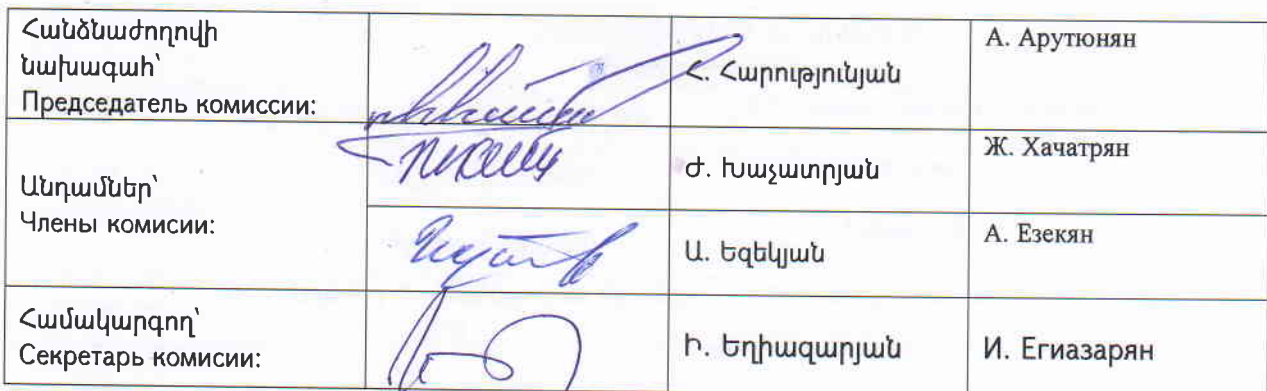 Հանձնաժողովի
նախագահ՝
Председатель комиссии:
Հ. Հարությունյան
А. Арутюнян
Անդամներ՝
Члены комисии:
Ժ. Խաչատրյան
Ж. Хачатрян
Ա. Եզեկյան
А. Езекян
Համակարգող՝
Секретарь комисии:
Ի. Եղիազարյան
И. Егиазарян